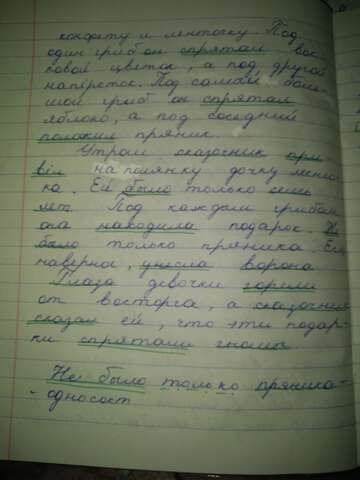 конфету и ленточку Под
один гриб он спрятал вос-
ковой цветок, а под другой
напёрсток. Под самый боль-
шой гриб он спрятал
яблоко, а под соседний
положил пряник.
Утром сказочник при-
вёл на полянку дочку лесни-
ка. Ей было только семь
лет. Под каждым грибом
она находила подарок. Не
было только пряника. Его,
наверное, унесла ворона
Глаза девочки горели
от восторга, а сказочник
сказал ей, что эти подар-
ки спрятали гномы.
Не было только пряника-
- односост